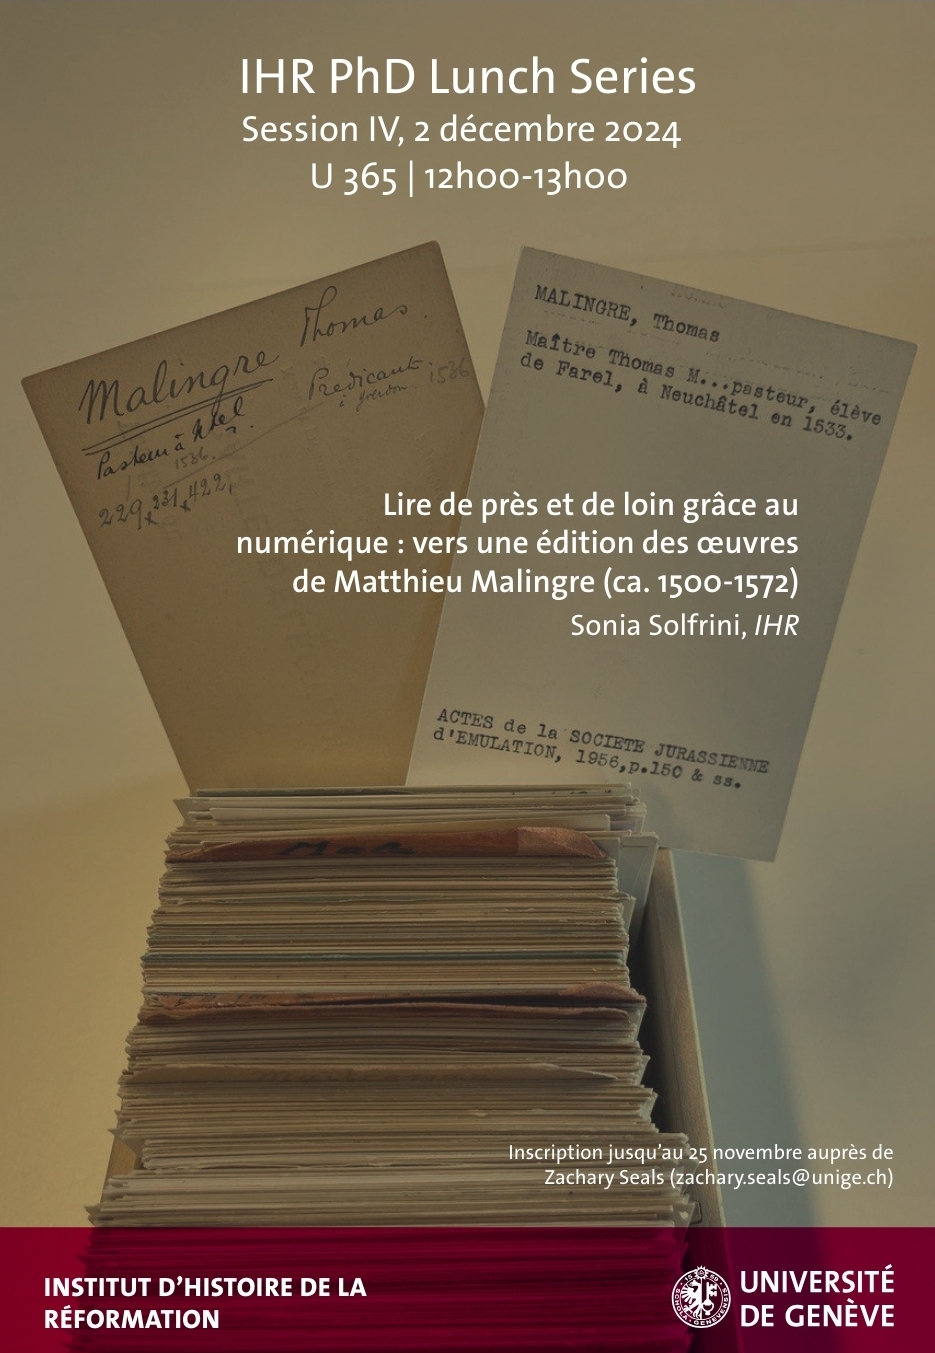 IHR PhD Lunch Series
Session IV, 2 décembre 2024
U 365 | 12h00-13h00
Malingre Thomas.
Pasteur à Ntel.
Predicant
1536
1536.
229, 231, 422,
MALINGRE, Thomas
Maître Thomas M...pasteur, élève
de Farel, à Neuchâtel en 1533.
Lire de près et de loin grâce au
numérique : vers une édition des œuvres
de Matthieu Malingre (ca. 1500-1572)
Sonia Solfrini, IHR
ACTES de la SOCIETE JURASSIENNE
d'EMULATION, 1956,p.150 & ss.
Inscription jusqu'au 25 novembre auprès de
Zachary Seals (zachary.seals@unige.ch)
INSTITUT D'HISTOIRE DE LA
RÉFORMATION
UNIVERSITÉ
DE GENÈVE